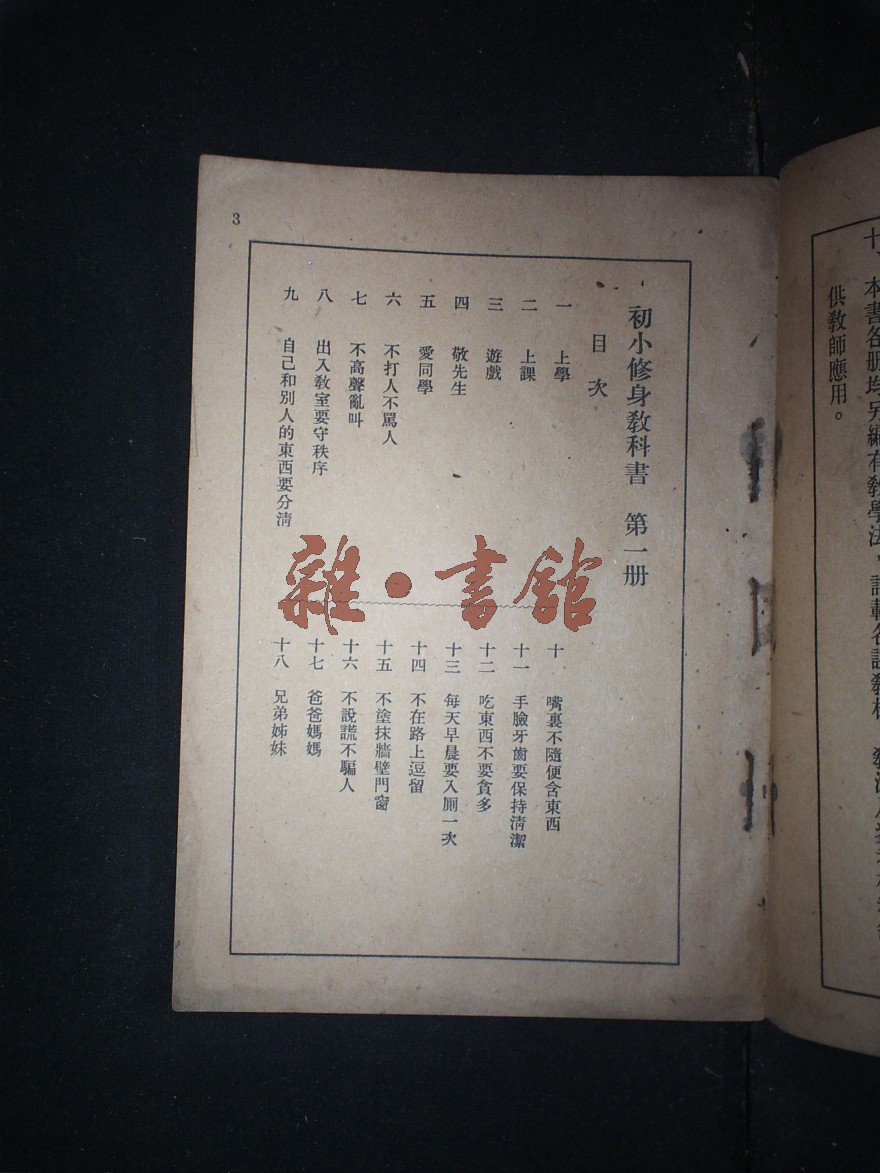 十、本書各册均另編有教學法，詳載各課教材
供教師應用。
3
初小修身教科書　第一册
目次
一　上學
二　上課
三　遊戲
四　敬先生
五　愛同學
六　不打人不罵人
七　不高聲亂叫
八　出入教室要守秩序
九　自己和別人的東西要分清
十　嘴裏不隨便含東西
十一　手臉牙齒要保持清潔
十二　吃東西不要貪多
十三　每天早晨要入厠一次
十四　不在路上逗留
十五　不塗抹牆壁門窗
十六　不說謊不騙人
十七　爸爸媽媽
十八　兄弟姊妹
雜·書館